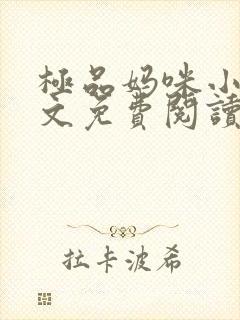 極品妈咪小
文免費閱讀
拉卡波希